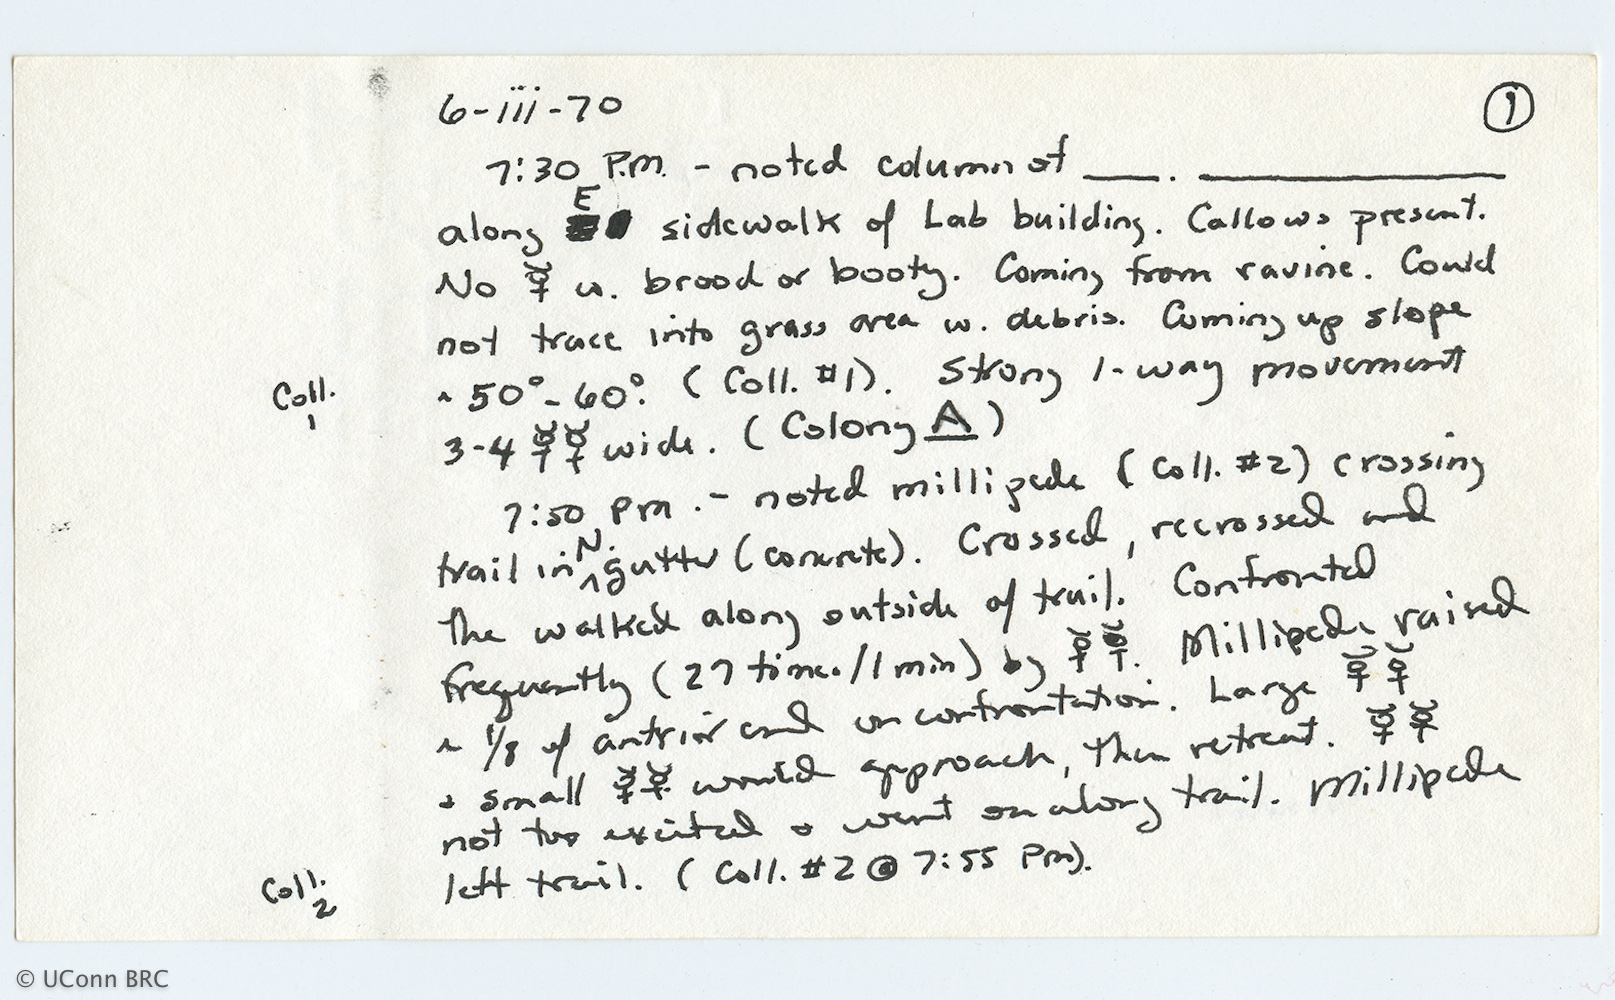 6-iii-70
①
7:30 P.M. - noted column of ___. __________
along E sidewalk of Lab building. Callows present.
No ☿ w. brood or booty. Coming from ravine. Could
not trace into grass area w. debris. Coming up slope
Coll. 1
~ 50°-60°. (Coll. #1). Strong 1-way movement
3-4 ☿☿ wide. (Colony A)
7:50 Pm. - noted millipede (Coll. #2) crossing
trail in N. gutter (concrete). Crossed, recrossed and
the walked along outside of trail. Confronted
frequently (27 times/1 min) by ☿☿. Millipede raised
~ 1/8 of antrior end on confrontation. Large ☿☿
+ small ☿☿ would approach, then retreat. ☿☿
not too excited + went on along trail. Millipede
Coll. 2
left trail. (Coll. #2 @ 7:55 Pm).
© UConn BRC